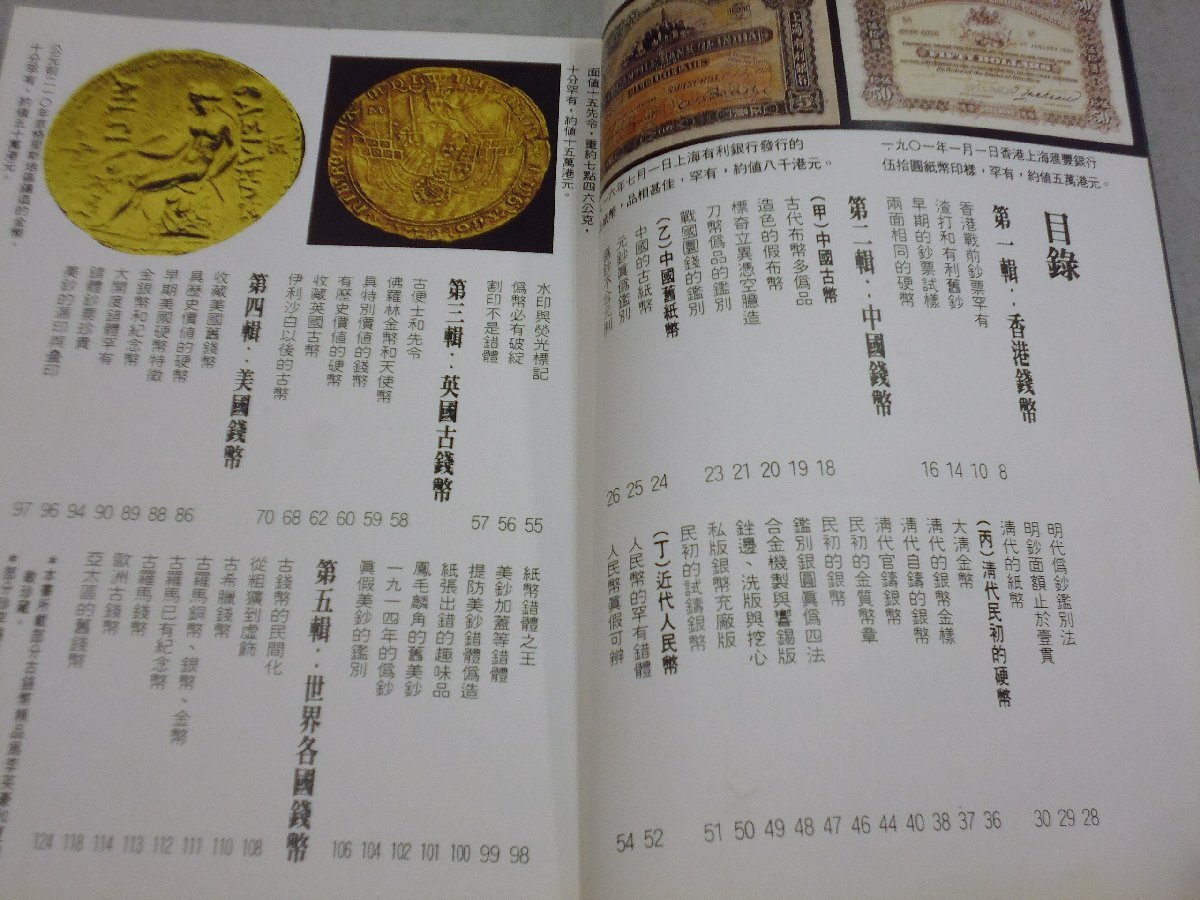 一九〇一年一月一日香港上海滙豐銀行
伍拾圓紙幣印樣，罕有，約值五萬港元。
六年七月一日上海有利銀行發行的
幣，品相甚佳、罕有，約值八千港元。
目錄
第一輯：香港錢幣
香港戰前鈔票罕有 8
渣打和有利舊鈔 10
早期的鈔票試樣 14
兩面相同的硬幣 16
第二輯：中國錢幣
(甲)中國古幣
古代布幣多僞品 18
造色的假布幣 19
標奇立異憑空臆造 20
刀幣僞品的鑑別 21
戰國圜錢的鑑別 23
(乙)中國舊紙幣
中國的古紙幣 24
元鈔眞僞鑑別 25
26
明代僞鈔鑑別法 28
明鈔面額止於壹貫 29
清代的紙幣 30
(丙)清代民初的硬幣
大清金幣 36
清代的銀幣金樣 37
清代自鑄的銀幣 38
清代官鑄銀幣 40
民初的金質幣章 44
民初的銀幣 46
鑑別銀圓眞僞四法 47
合金機製與響錫版 48
銼邊、洗版與挖心 49
私版銀幣充廠版 50
民初的試鑄銀幣 51
(丁)近代人民幣
人民幣的罕有錯體 52
人民幣眞假可辨 54
面值十五先令，重約七點四六公克，
十分罕有，約值十五萬港元。
十分罕有，約值五十萬港元。
水印與熒光標記 55
僞幣必有破綻 56
割印不是錯體 57
第三輯：英國古錢幣
古便士和先令 58
佛羅林金幣和天使幣 59
具特別價值的錢幣 60
有歷史價值的硬幣 62
收藏英國古幣 68
伊利沙白以後的古幣 70
第四輯：美國錢幣
收藏美國舊錢幣 86
具歷史價值的硬幣 88
早期美國硬幣特徵 89
金銀幣和紀念幣 90
大開度錯體罕有 94
錯體鈔票珍貴 96
美鈔的漏印與疊印 97
紙幣錯體之王 98
美鈔加蓋等錯體 99
提防美鈔錯體僞造 100
紙張出錯的趣味品 101
鳳毛麟角的舊美鈔 102
一九一四年的僞鈔 104
眞假美鈔的鑑別 106
第五輯：世界各國錢幣
古錢幣的民間化
從粗獷到虛飾 108
古希臘錢幣 110
古羅馬銅幣、銀幣、金幣 111
古羅馬已有紀念幣 112
古羅馬錢幣 113
歐洲古錢幣 114
亞太區的舊錢幣 118
124